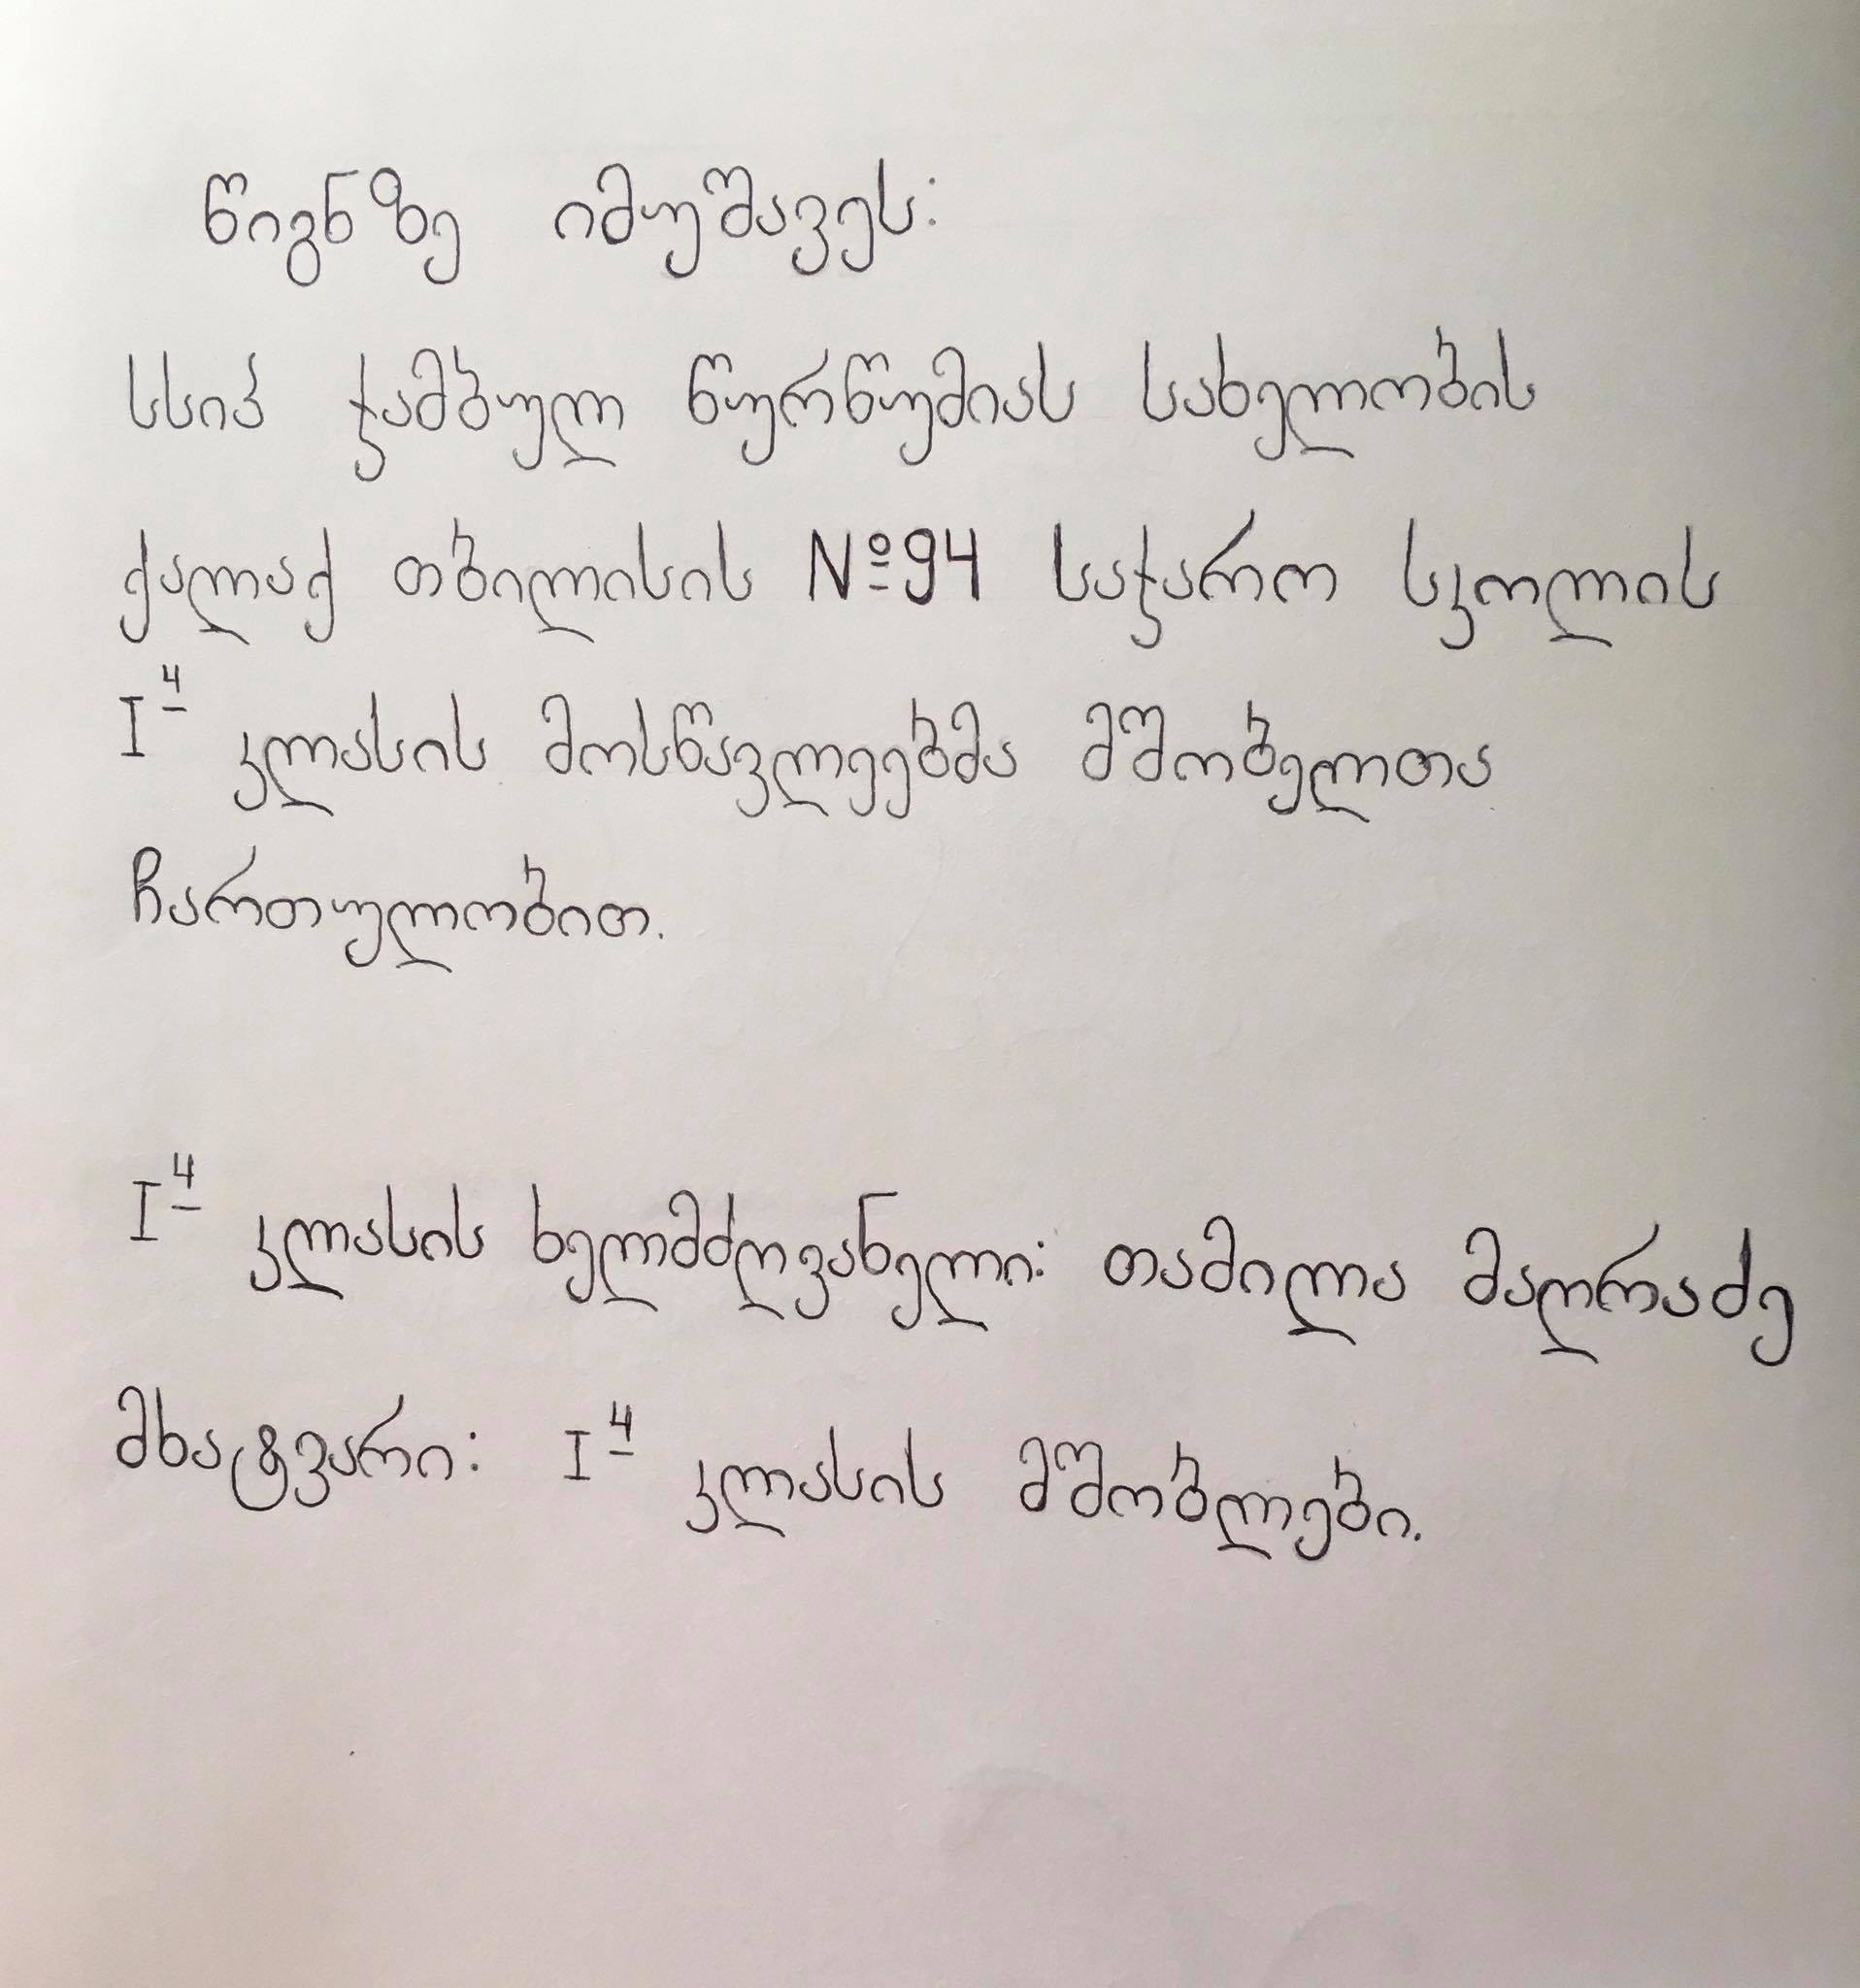 წიგნზე იმუშავეს:
სსიპ ჯამბულ წურწუმიას სახელობის
ქალაქ თბილისის №94 საჯარო სკოლის
I⁴ კლასის მოსწავლეებმა მშობელთა
ჩართულობით.
I⁴ კლასის ხელმძღვანელი: თამილა მაღრაძე
მხატვარი: I⁴ კლასის მშობლები.